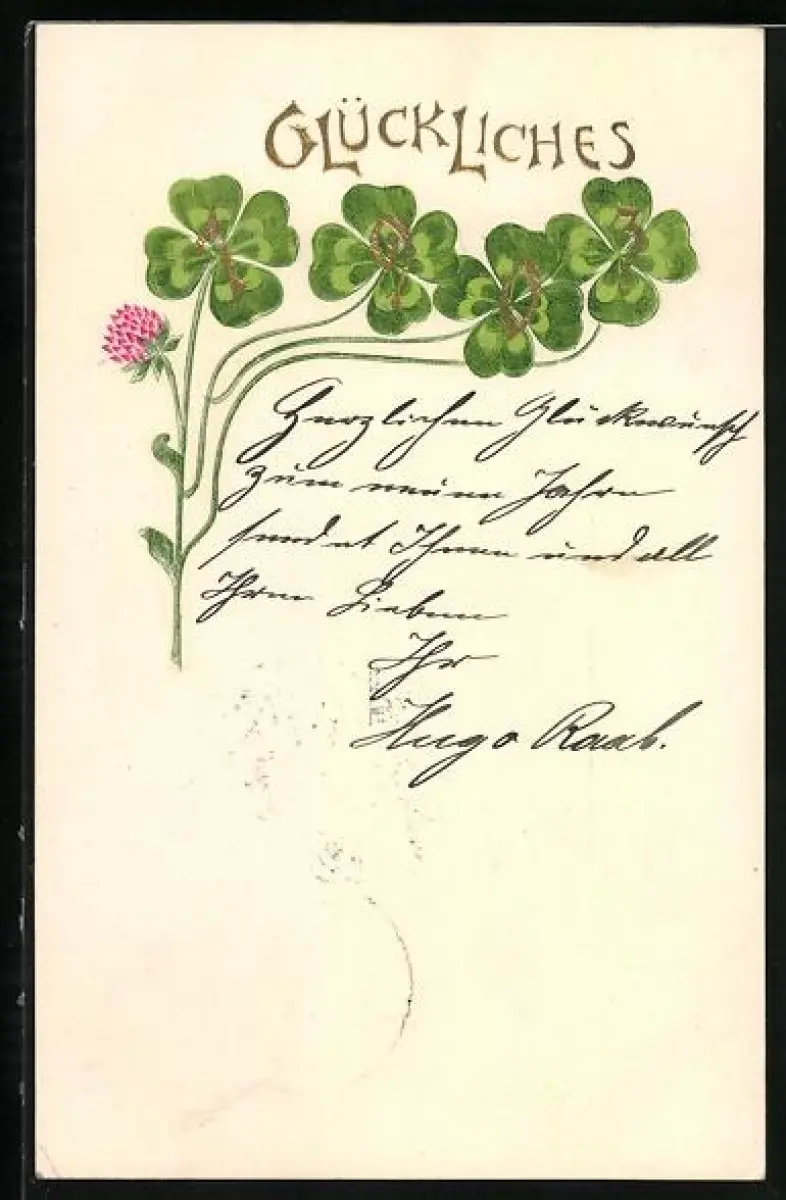 GLÜCKLICHES
1 9 0 3
Herzlichen Glückwunsch
zum neuen Jahre
sendet Ihnen und all
Ihren Lieben
Ihr
Hugo Raab.